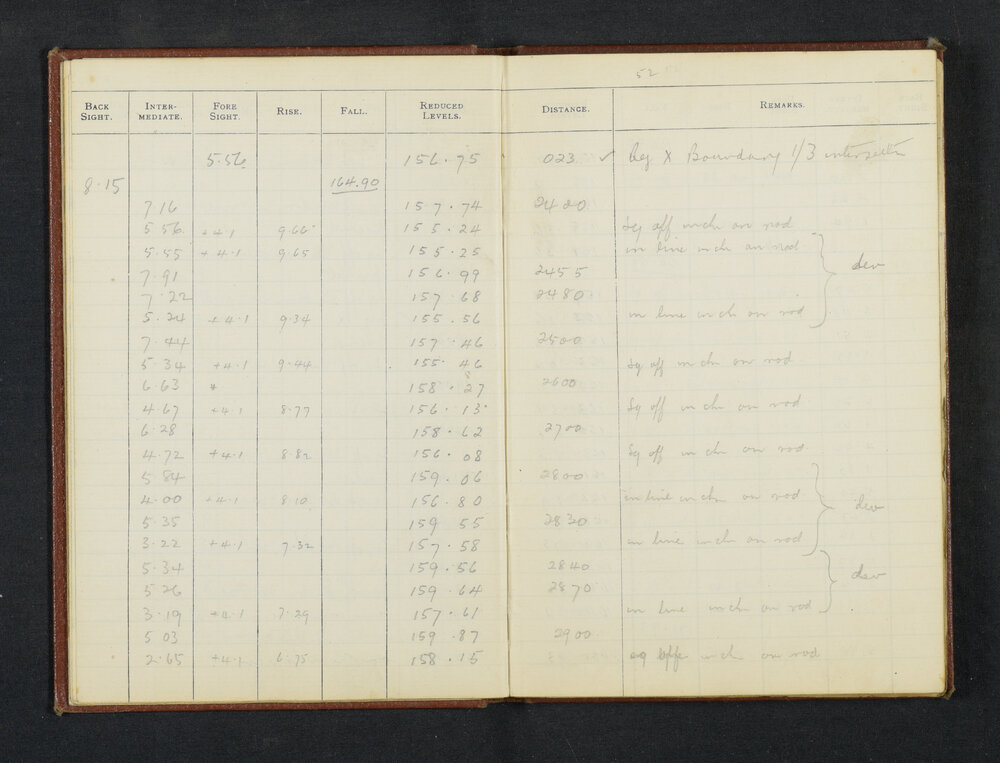 52
BACK SIGHT. INTER-MEDIATE. FORE SIGHT. RISE. FALL. REDUCED LEVELS. DISTANCE. REMARKS.
5.56 156.75 023 ✓ Peg X Boundary 1/3 intersection
8.15 164.90
7.16 157.74 2420
5.56 +4.1 9.66 155.24 sq off inch on rod
5.55 +4.1 9.65 155.25 in line inch on rod
7.91 156.99 2455 dev
7.22 157.68 2480
5.24 +4.1 9.34 155.56 in line inch on rod
7.44 157.46 2500
5.34 +4.1 9.44 155.46 sq off inch on rod
6.63 * 158.27 2600
4.67 +4.1 8.77 156.13 sq off inch on rod
6.28 158.62 2700
4.72 +4.1 8.82 156.08 sq off inch on rod
5.84 159.06 2800
4.00 +4.1 8.10 156.80 in line inch on rod dev
5.35 159 55 2830
3.22 +4.1 7.32 157.58 in line inch on rod
5.34 159.56 2840
5.26 159.64 2870 dev
3.19 +4.1 7.29 157.61 in line inch on rod
5 03 159.87 2900
2.65 +4.1 6.75 158.15 inch on rod